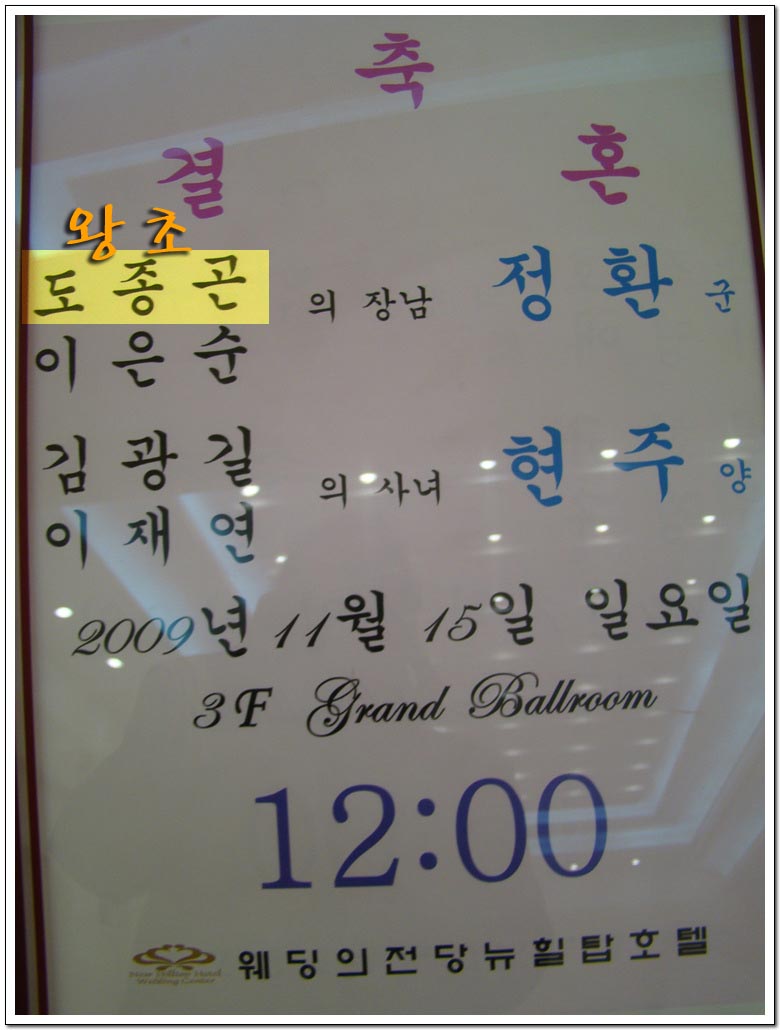 축
결 혼
왕초
도종곤
이은순
의 장남 정환 군
김광길
이재연
의 사녀 현주 양
2009년 11월 15일 일요일
3F Grand Ballroom
12:00
New Hilltop Hotel
Wedding Center
웨딩의전당뉴힐탑호텔